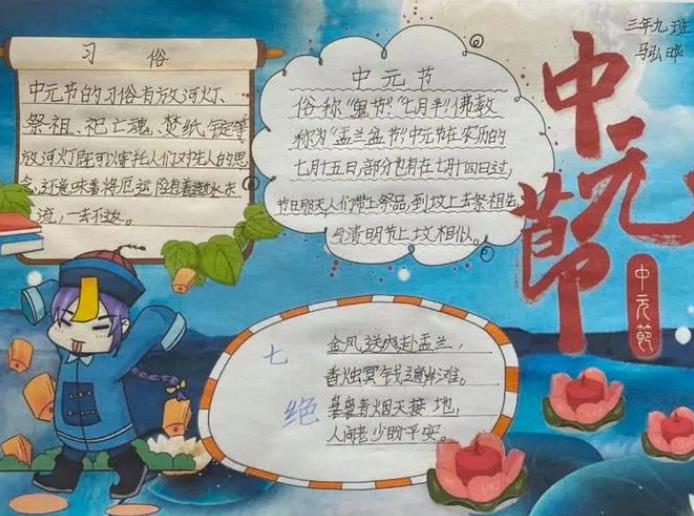 习俗
中元节的习俗有放河灯、
祭祖、祀亡魂、焚纸锭等
放河灯既可以寄托人们对先人的思
念,还意味着将厄运随着流水东
流,一去不返。
中元节
俗称"鬼节""七月半"佛教
称为"盂兰盆节"中元节在农历的
七月十五日,部分也有在七月十四日过,
节日那天人们带上祭品,到坟上去祭祖先
与清明节上坟相似。
三年九班
马弘晔
中元节
中元節
七绝
金风送爽赴盂兰,
香烛冥钱遍岸滩。
袅袅青烟天接地,
人间老少盼平安。